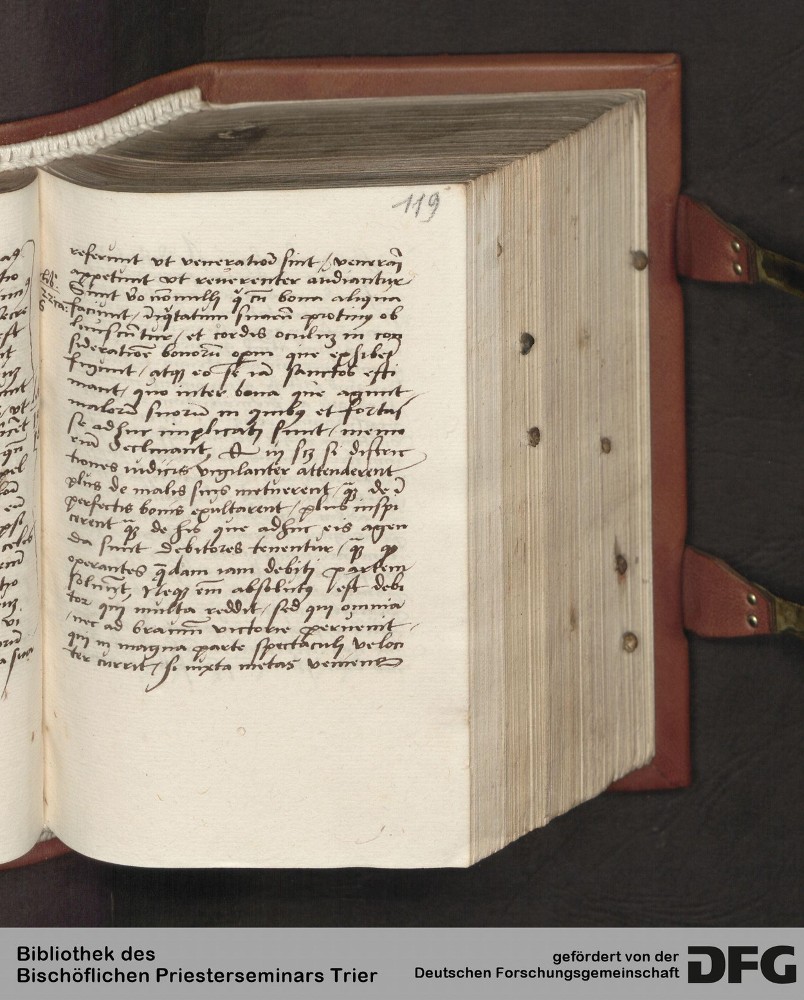 119
referunt vt veneratioī sint / venerari
appetunt vt reuerenter audiantur
Sunt v̊o nōnulli q̇ cū bona aliqua
faciunt / iniq̇tatum suarū protinus ob
liuiscūtur / et cordis oculum in con
sideratiōe bonorū operū que exhibent
figunt / atq̨ eo se iā sanctos esti
mant / quo inter bona que agunt
malorū suorū in quibus et fortas
se adhuc implicati sunt / memo
riā declinant, Qui sci[licet] si distric
tiones iudicis vigilanter attenderent
plus de malis suis metuerent / q̄ de ī
perfectis bonis exultarent / plus inspi
cerent q̄ de his que adhuc eis agen
da sunt debitores tenentur / q̄ q̇
operantes q̄dam iam debiti partem
soluunt, Neq̨ em̄ absolutus est debi
tor qui multa reddit / sed qui omnia
/ nec ad brauium victorie peruenit /
qui in magna parte spectaculi veloci
ter currit / si iuxta metas veniens
Bibliothek des
Bischöflichen Priesterseminars Trier
gefördert von der
Deutschen Forschungsgemeinschaft
DFG